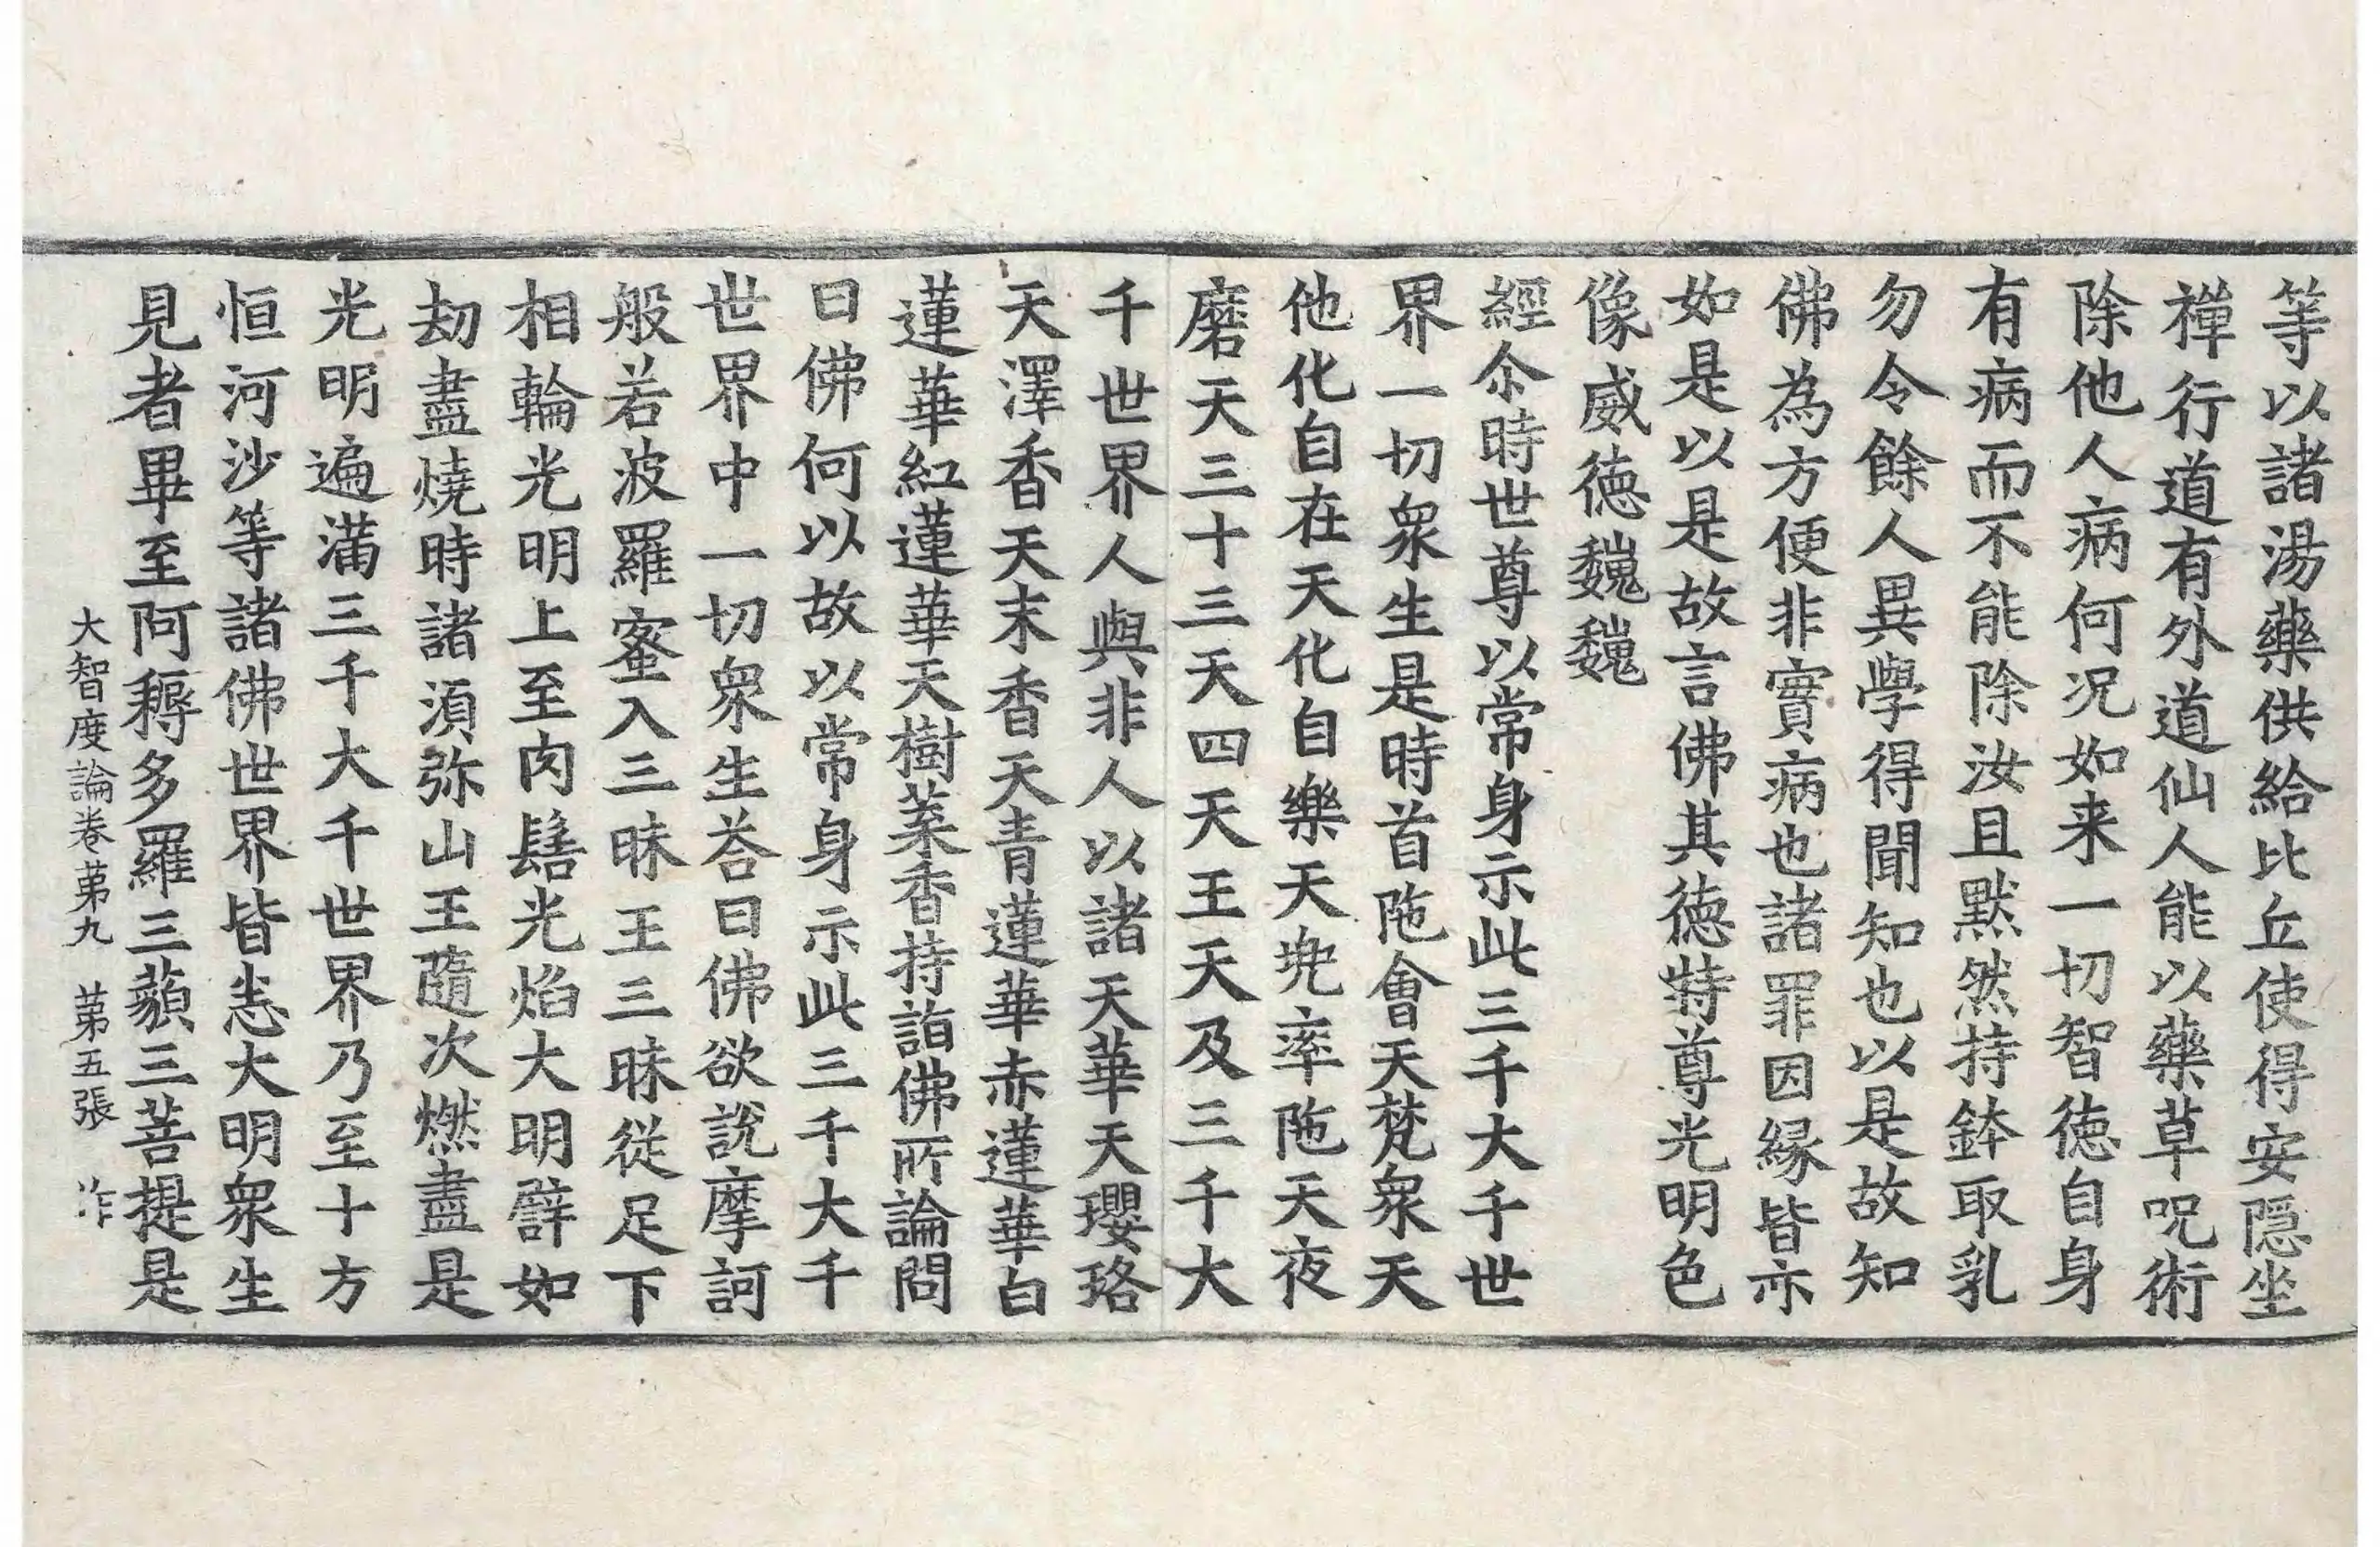 等以諸湯藥供給比丘使得安隠坐
禪行道有外道仙人能以藥草呪術
除他人病何況如来一切智徳自身
有病而不能除汝且默然持鉢取乳
勿令餘人異學得聞知也以是故知
佛為方便非實病也諸罪因緣皆亦
如是以是故言佛其徳特尊光明色
像威徳巍巍
經尒時世尊以常身示此三千大千世
界一切衆生是時首陁會天梵衆天
他化自在天化自樂天兠率陁天夜
磨天三十三天四天王天及三千大
千世界人與非人以諸天華天瓔珞
天澤香天末香天青蓮華赤蓮華白
蓮華紅蓮華天樹葉香持詣佛所論問
曰佛何以故以常身示此三千大千
世界中一切衆生荅曰佛欲說摩訶
般若波羅蜜入三昧王三昧從足下
相輪光明上至肉髻光焰大明譬如
劫盡燒時諸湏弥山王隨次燃盡是
光明遍滿三千大千世界乃至十方
恒河沙等諸佛世界皆悉大明衆生
見者畢至阿耨多羅三藐三菩提是
大智度論卷苐九 苐五張 作